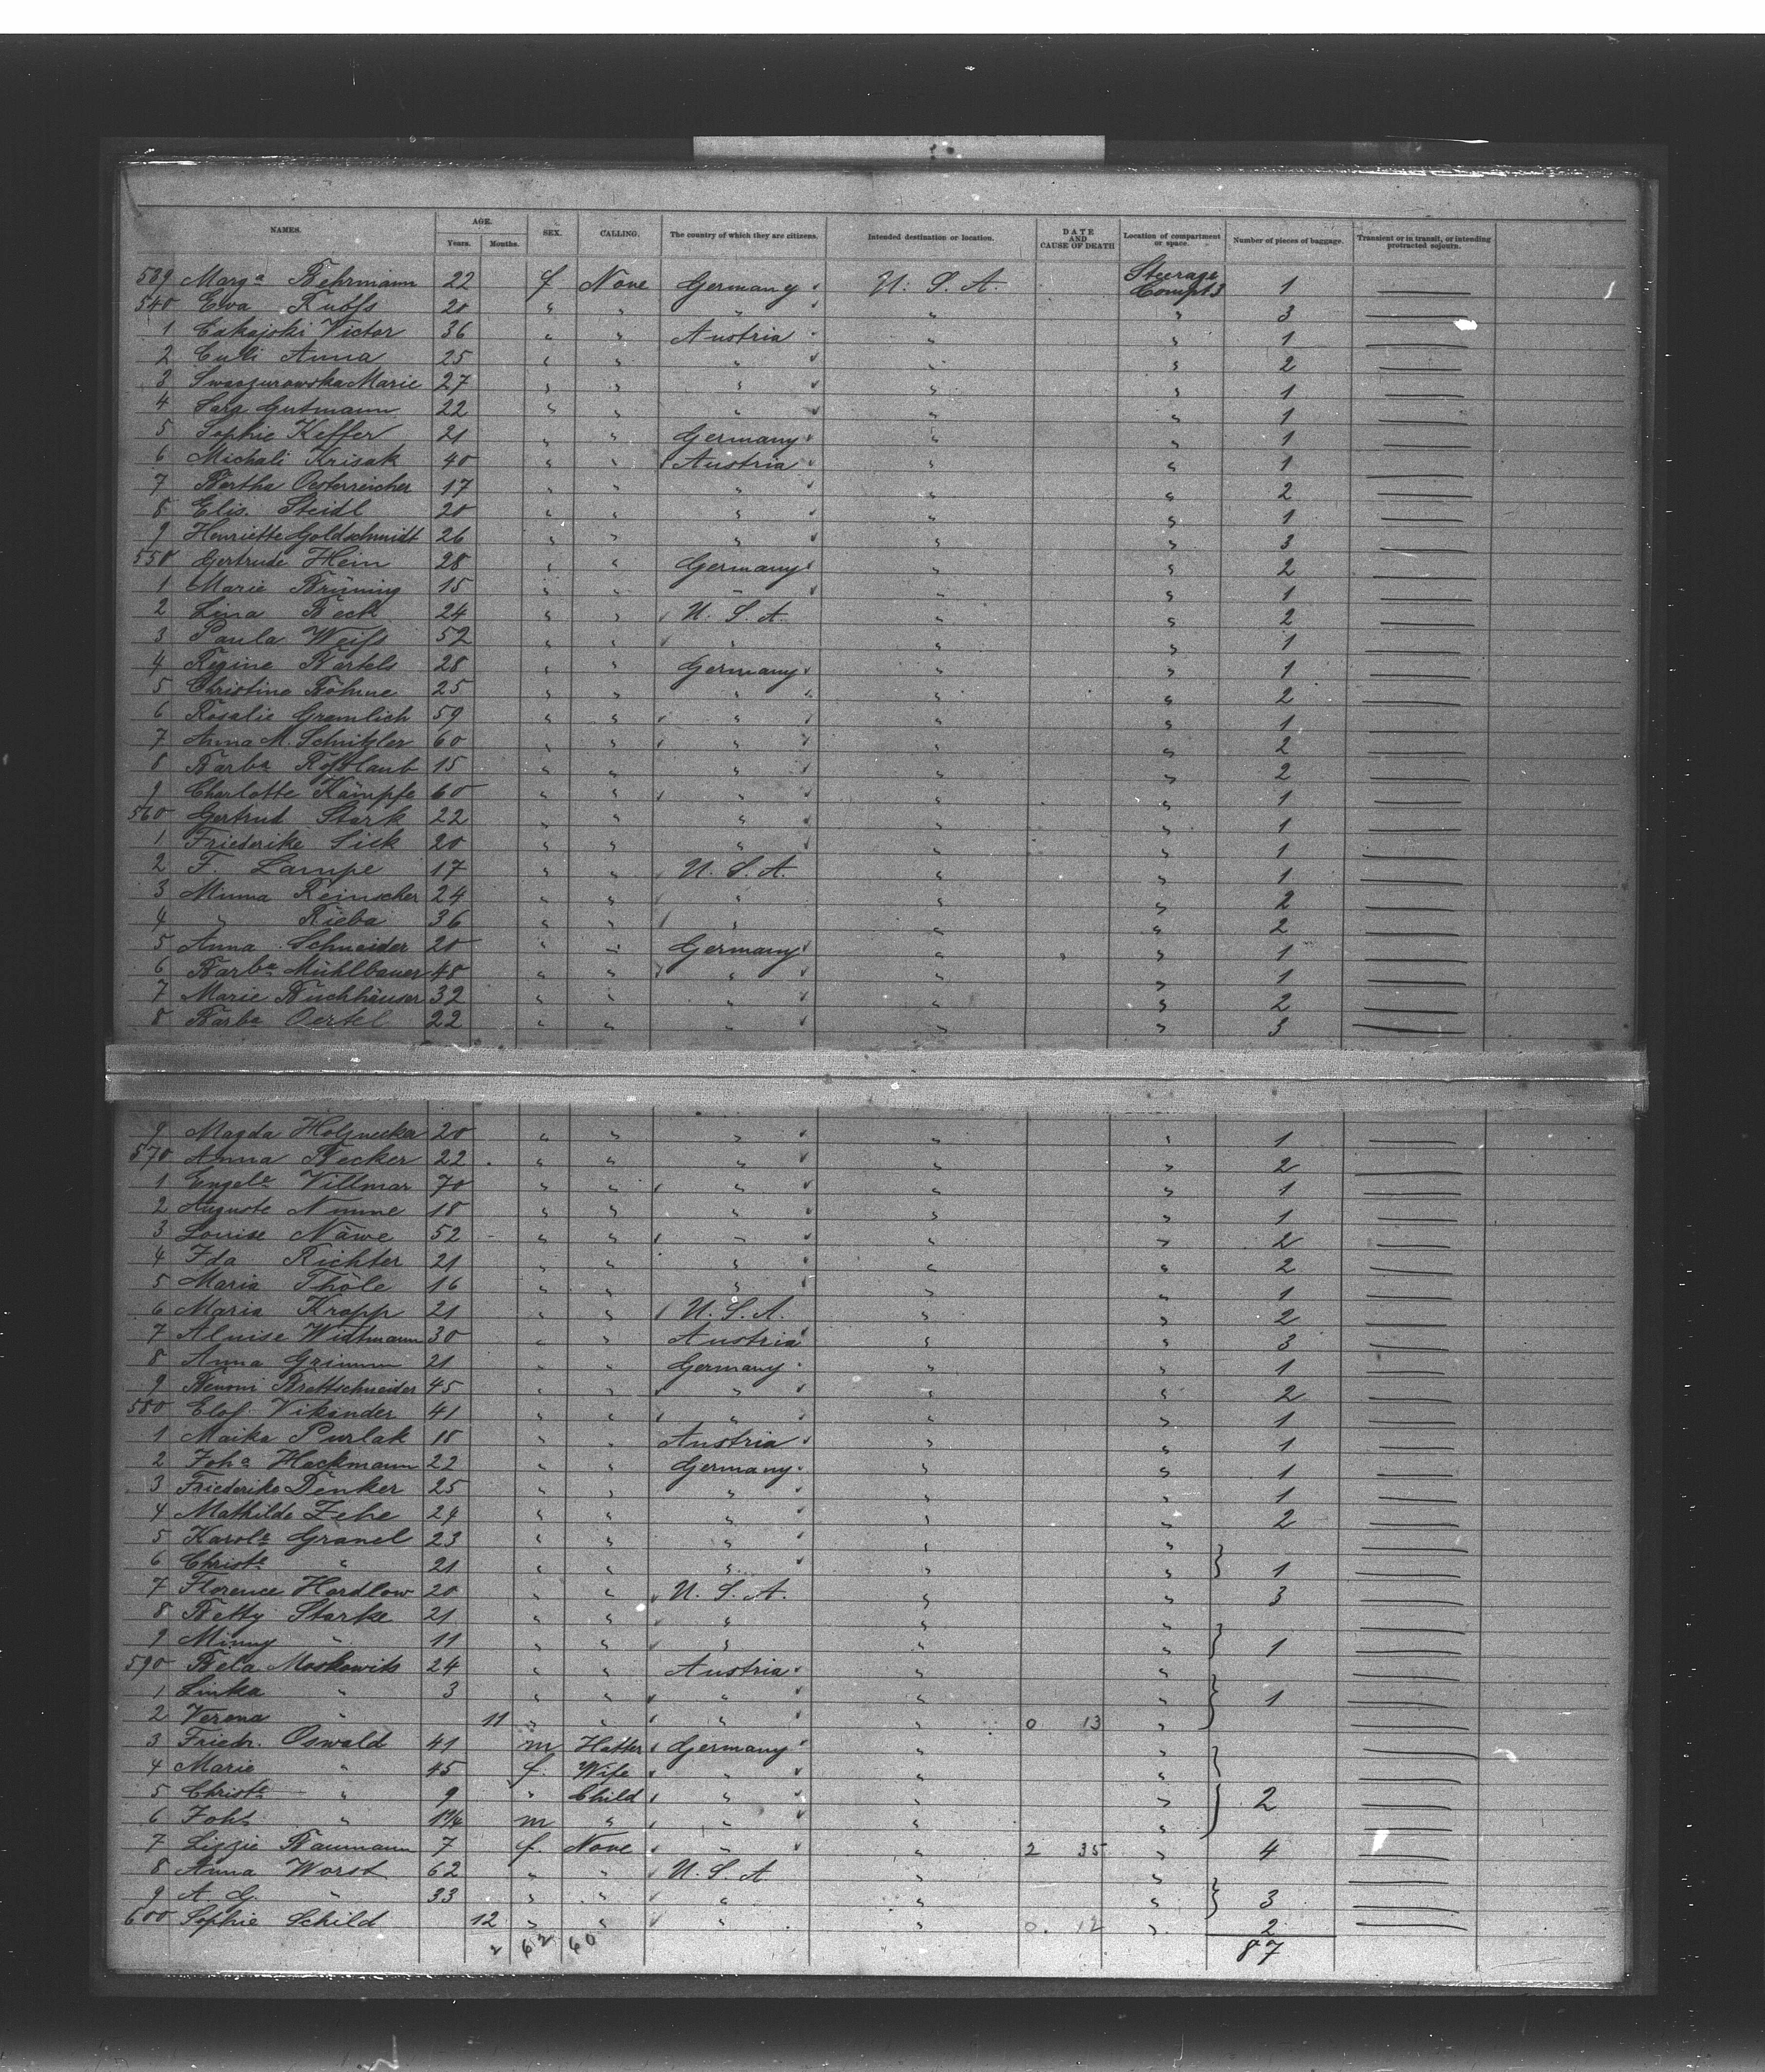 NAMES. AGE. Years. Months. SEX. CALLING. The country of which they are citizens. Intended destination or location. DATE AND CAUSE OF DEATH Location of compartment or space. Number of pieces of baggage. Transient or in transit, or intending protracted sojourn.
539 Marga Behrmann 22 f None Germany U. S. A. Steerage Compt 3 1
540 Ewa 20 " " " " " 3
1 Victor 36 " " Austria " " 1
2 Anna 25 " " " " " 2
3 Marie 27 " " " " " 1
4 Sara Gutmann 22 " " " " " 1
5 Sophie Keffer 21 " " Germany " " 1
6 Michali Krisak 40 " " Austria " " 1
7 Bertha Oesterreicher 17 " " " " " 2
8 Elis. Steidl 20 " " " " " 1
9 Henriette Goldschmidt 26 " " " " " 3
550 Gertrude Hein 28 " " Germany " " 2
1 Marie Brüning 15 " " " " " 1
2 Lina Beck 24 " " U. S. A. " " 2
3 Paula Weiß 52 " " " " " 1
4 Regine Bartels 28 " " Germany " " 1
5 Christine Böhme 25 " " " " " 2
6 Rosalie Gramlich 59 " " " " " 1
7 Anna M. Schnitzler 60 " " " " " 2
8 Barba Roßlaub 15 " " " " " 2
9 Charlotte Kämpfe 60 " " " " " 1
560 Gertrud Stark 22 " " " " " 1
1 Friederike Sick 20 " " " " " 1
2 F. Lampe 17 " " U. S. A. " " 1
3 Minna Reinscher 24 " " " " " 2
4 " Rieba 36 " " " " " 2
5 Anna Schneider 20 " " Germany " " 1
6 Barba Mühlbauer 48 " " " " " 1
7 Marie Buchhäuser 32 " " " " " 2
8 Barba Oertel 22 " " " " " 3
9 Magda Holznecker 20 " " " " " 1
570 Anna Becker 22 " " " " " 2
1 Engele Villmar 70 " " " " " 1
2 Auguste Nimme 18 " " " " " 1
3 Louise Näwe 52 " " " " " 2
4 Ida Richter 21 " " " " " 2
5 Maria Thöle 16 " " " " " 1
6 Maria Kropp 21 " " U. S. A. " " 2
7 Aluise Widtmann 30 " " Austria " " 3
8 Anna Grimm 21 " " Germany " " 1
9 Benomi Brettschneider 45 " " " " " 2
580 Elof Vikander 41 " " " " " 1
1 Maika Purlak 18 " " Austria " " 1
2 Joha Hackmann 22 " " Germany " " 1
3 Friederike Denker 25 " " " " " 1
4 Mathilde Zehe 24 " " " " " 2
5 Karole Granel 23 " " " " "
6 Christe " 21 " " " " " 1
7 Florence Hardlow 20 " " U. S. A. " " 3
8 Betty Starke 21 " " " " "
9 Minny " 11 " " " " " 1
590 Bela Moskowits 24 " " Austria " "
1 Linka " 3 " " " " " 1
2 Verona " 11 " " " " 0 13 "
3 Friedr. Oswald 41 m Hatter Germany " "
4 Marie " 45 f. Wife " " "
5 Christe " 9 " Child " " " 2
6 Johs " m " " " "
7 Lizzie Baumann 7 f. None " " 2 35 " 4
8 Anna Worst 62 " " U. S. A. " "
9 A. G. " 33 " " " " " 3
600 Sophie Schild 12 " " " " 0. 12 " 2
2 62 60 87